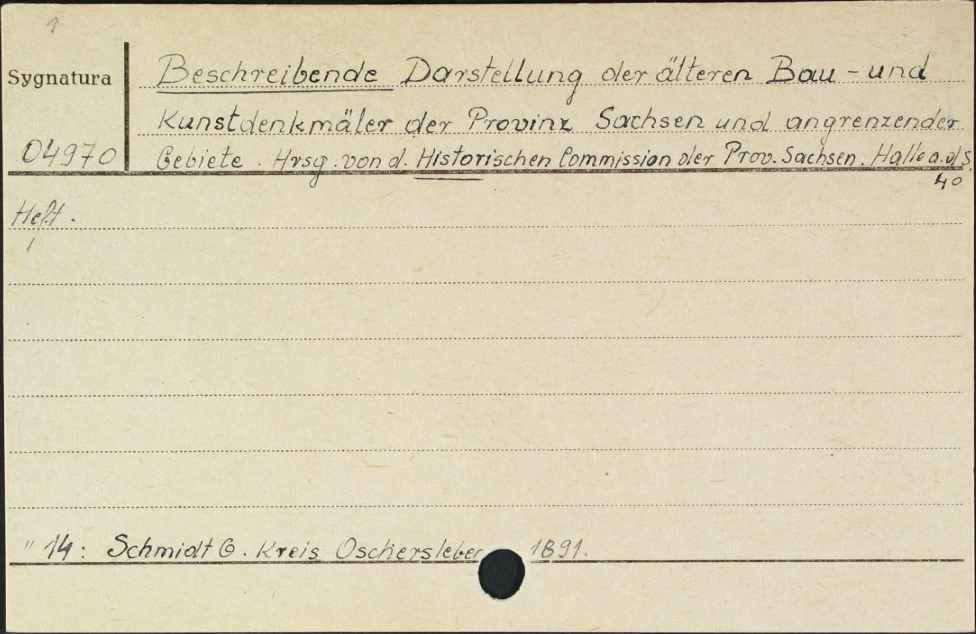 1
Sygnatura
04970
Beschreibende Darstellung der älteren Bau - und
Kunstdenkmäler der Provinz Sachsen und angrenzender
Gebiete. Hrsg. von d. Historischen Commission der Prov. Sachsen. Halle a.d/S.
4o
Heft.
" 14: Schmidt G. Kreis Oschersleben 1891.